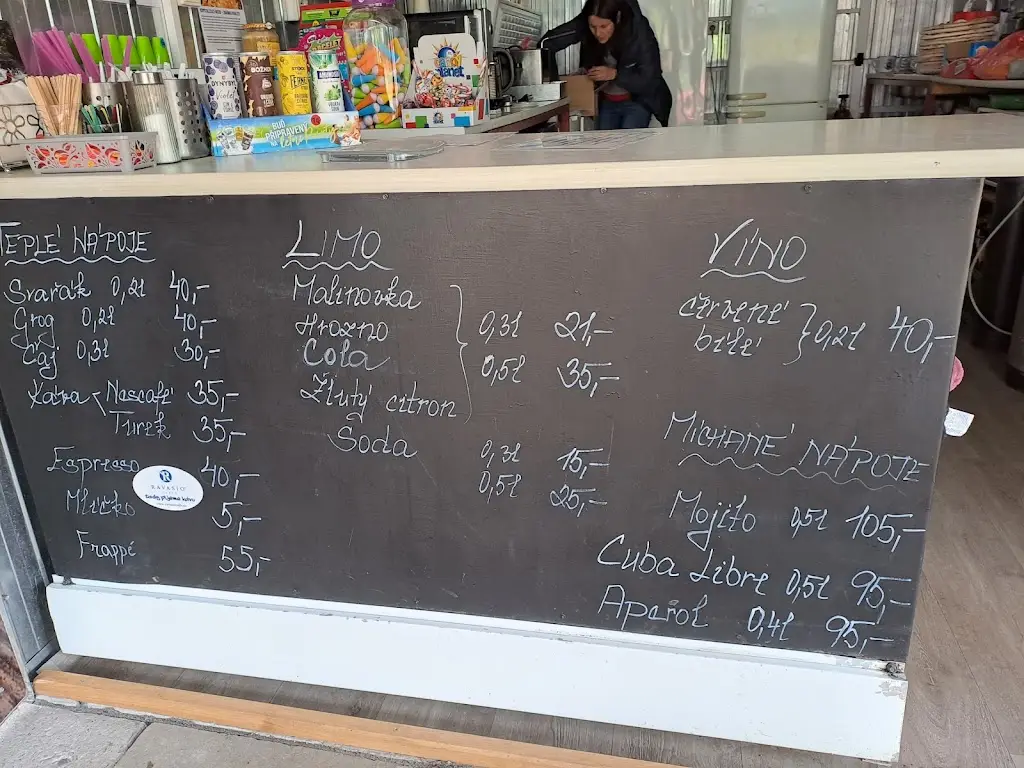 BUĎ
PŘIPRAVENÝ
NA léto
Planet
TEPLÉ NÁPOJE
Svařák 0,2l 40,-
Grog 0,2l 40,-
Čaj 0,3l 30,-
Káva Nescafé 35,-
Turek 35,-
Espresso 40,-
Mlíčko 5,-
Frappé 55,-
RAVASIO
LIMO
Malinovka
Hrozno 0,3l 21,-
Cola 0,5l 35,-
Žlutý citron
Soda 0,3l 15,-
0,5l 25,-
VÍNO
červené
bílé 0,2l 40,-
MICHANÉ NÁPOJE
Mojito 0,5l 105,-
Cuba Libre 0,5l 95,-
Apeřol 0,4l 95,-